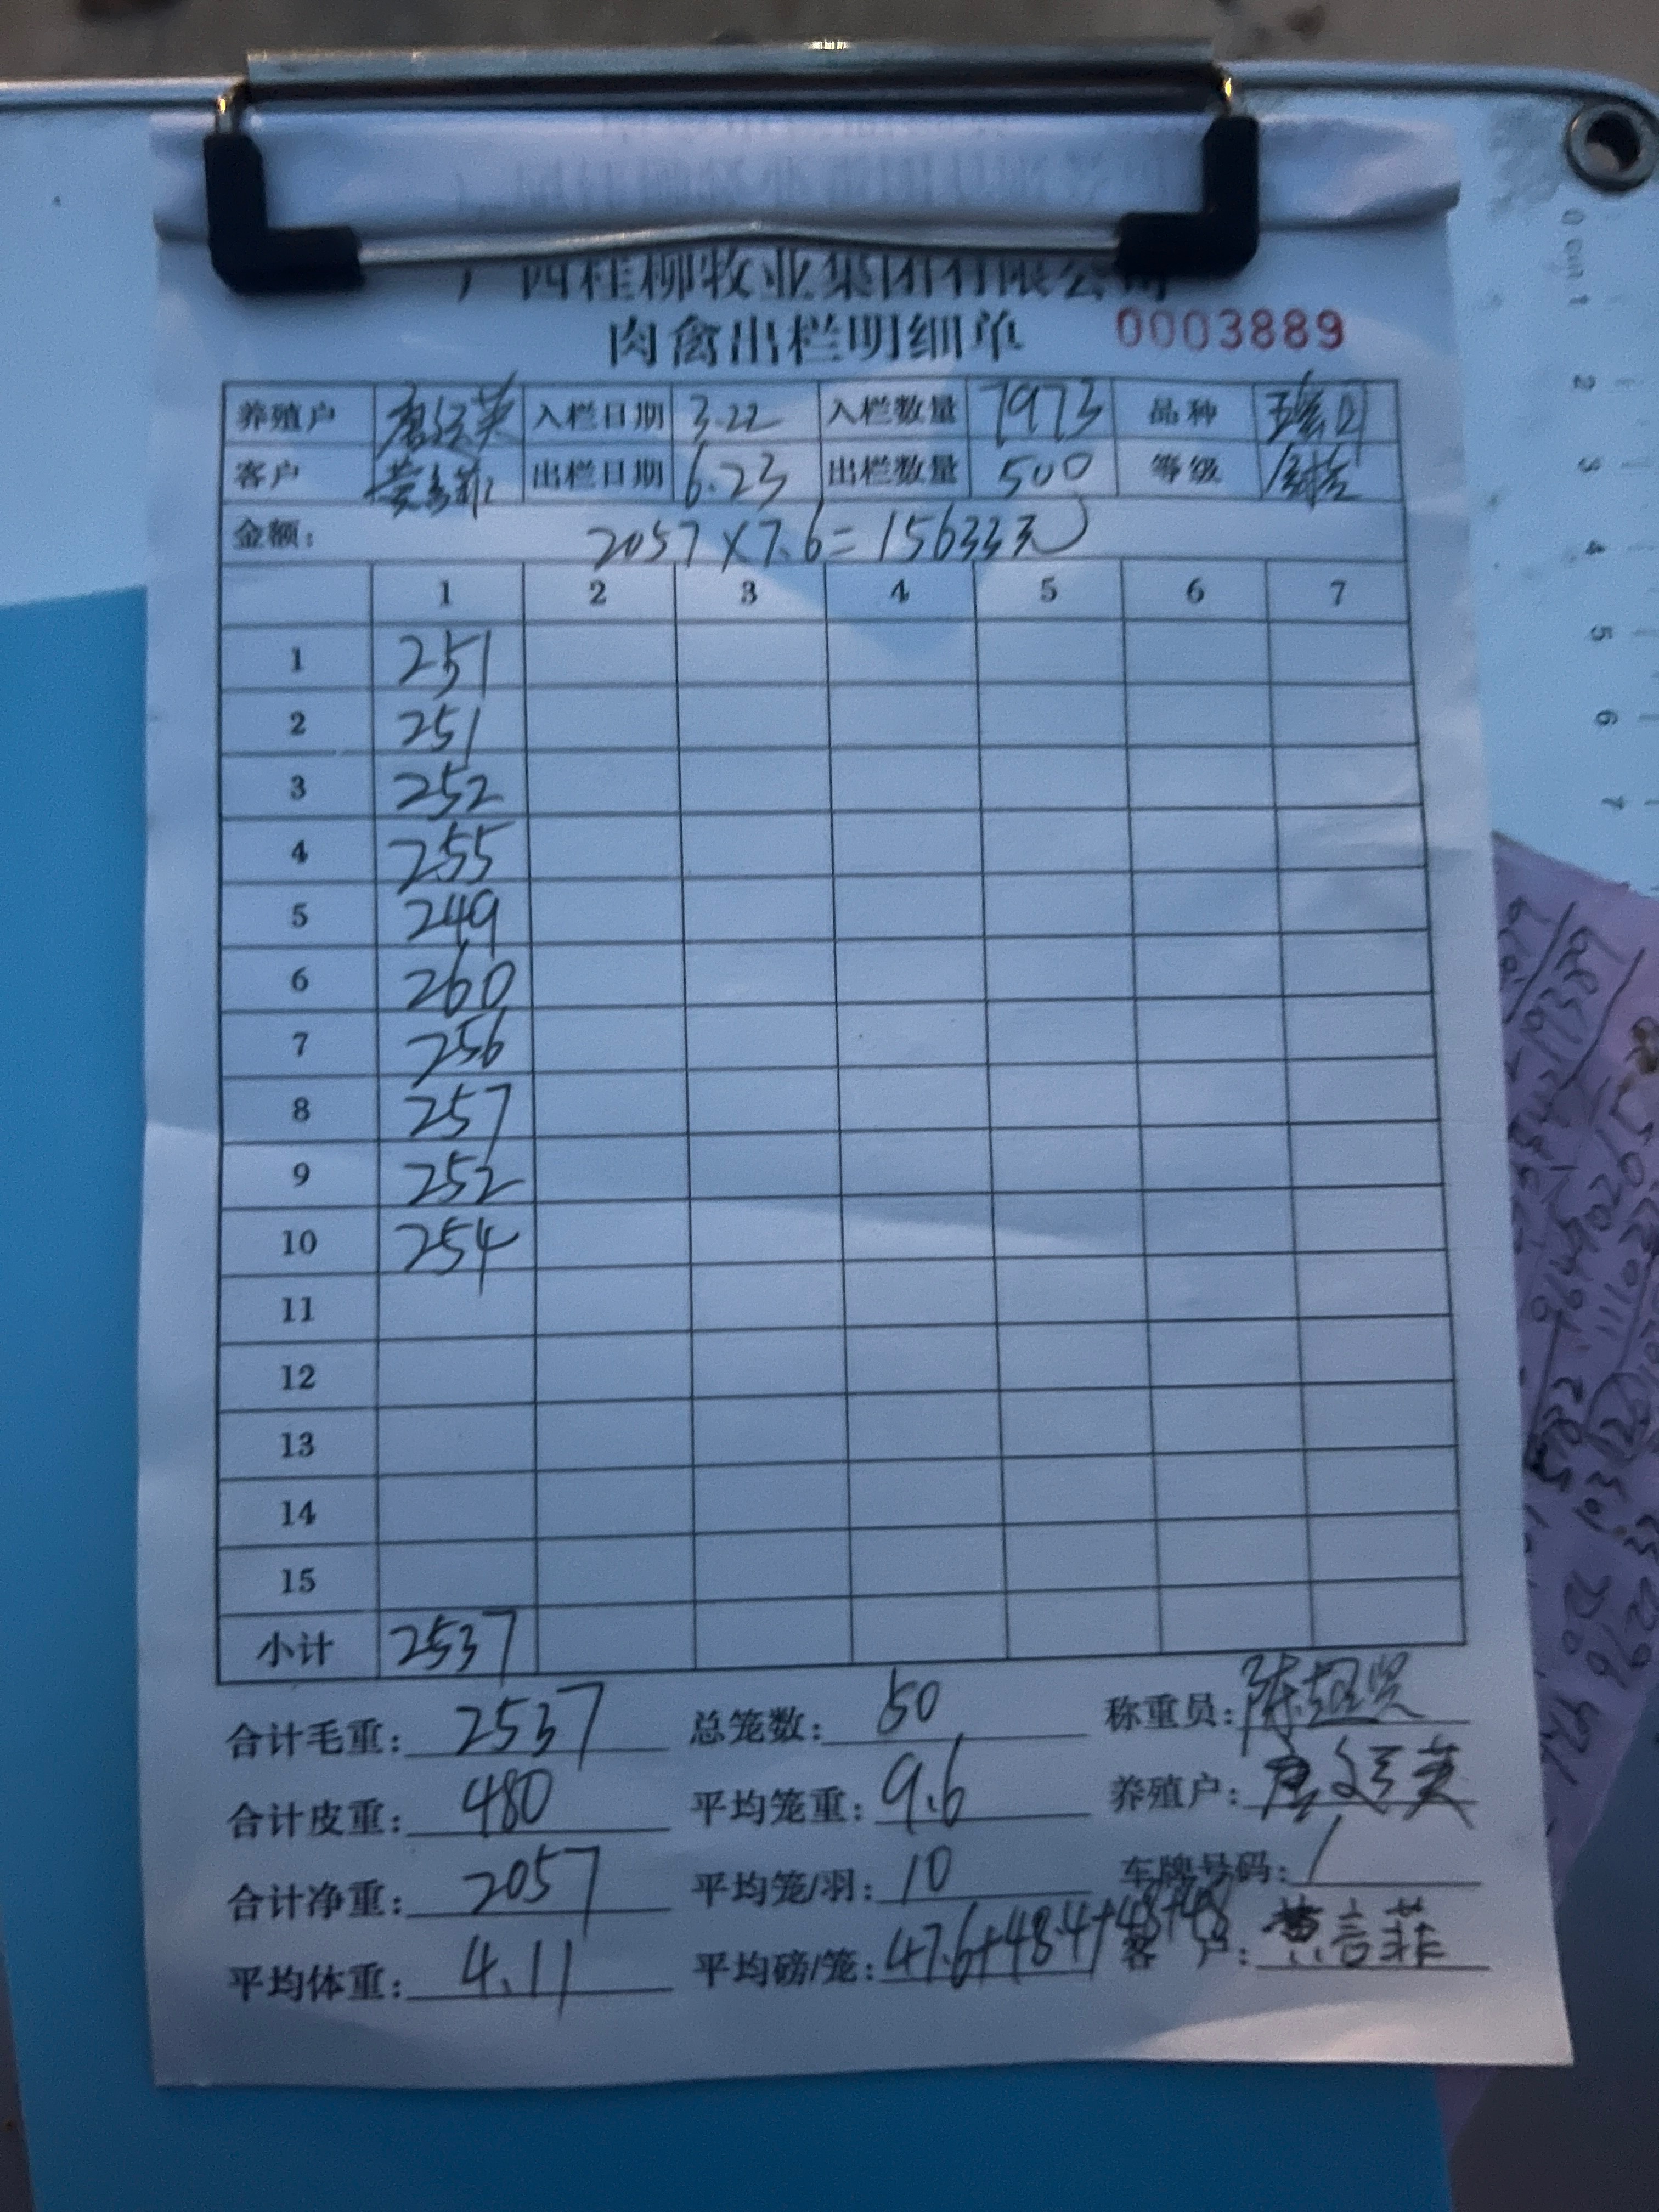 广西桂柳牧业集团有限公司
肉禽出栏明细单 0003889
养殖户 入栏日期 3.22 入栏数量 7973 品种
客户 黄言菲 出栏日期 6.23 出栏数量 500 等级
金额: 2057×7.6=15633元
1 2 3 4 5 6 7
1 251
2 251
3 252
4 255
5 249
6 260
7 256
8 257
9 252
10 254
11
12
13
14
15
小计 2537
合计毛重: 2537 总笼数: 50 称重员:
合计皮重: 480 平均笼重: 9.6 养殖户:
合计净重: 2057 平均笼/羽: 10 车牌号码: /
平均体重: 4.11 平均磅/笼: 47.6+48.4+48+48 客户: 黄言菲